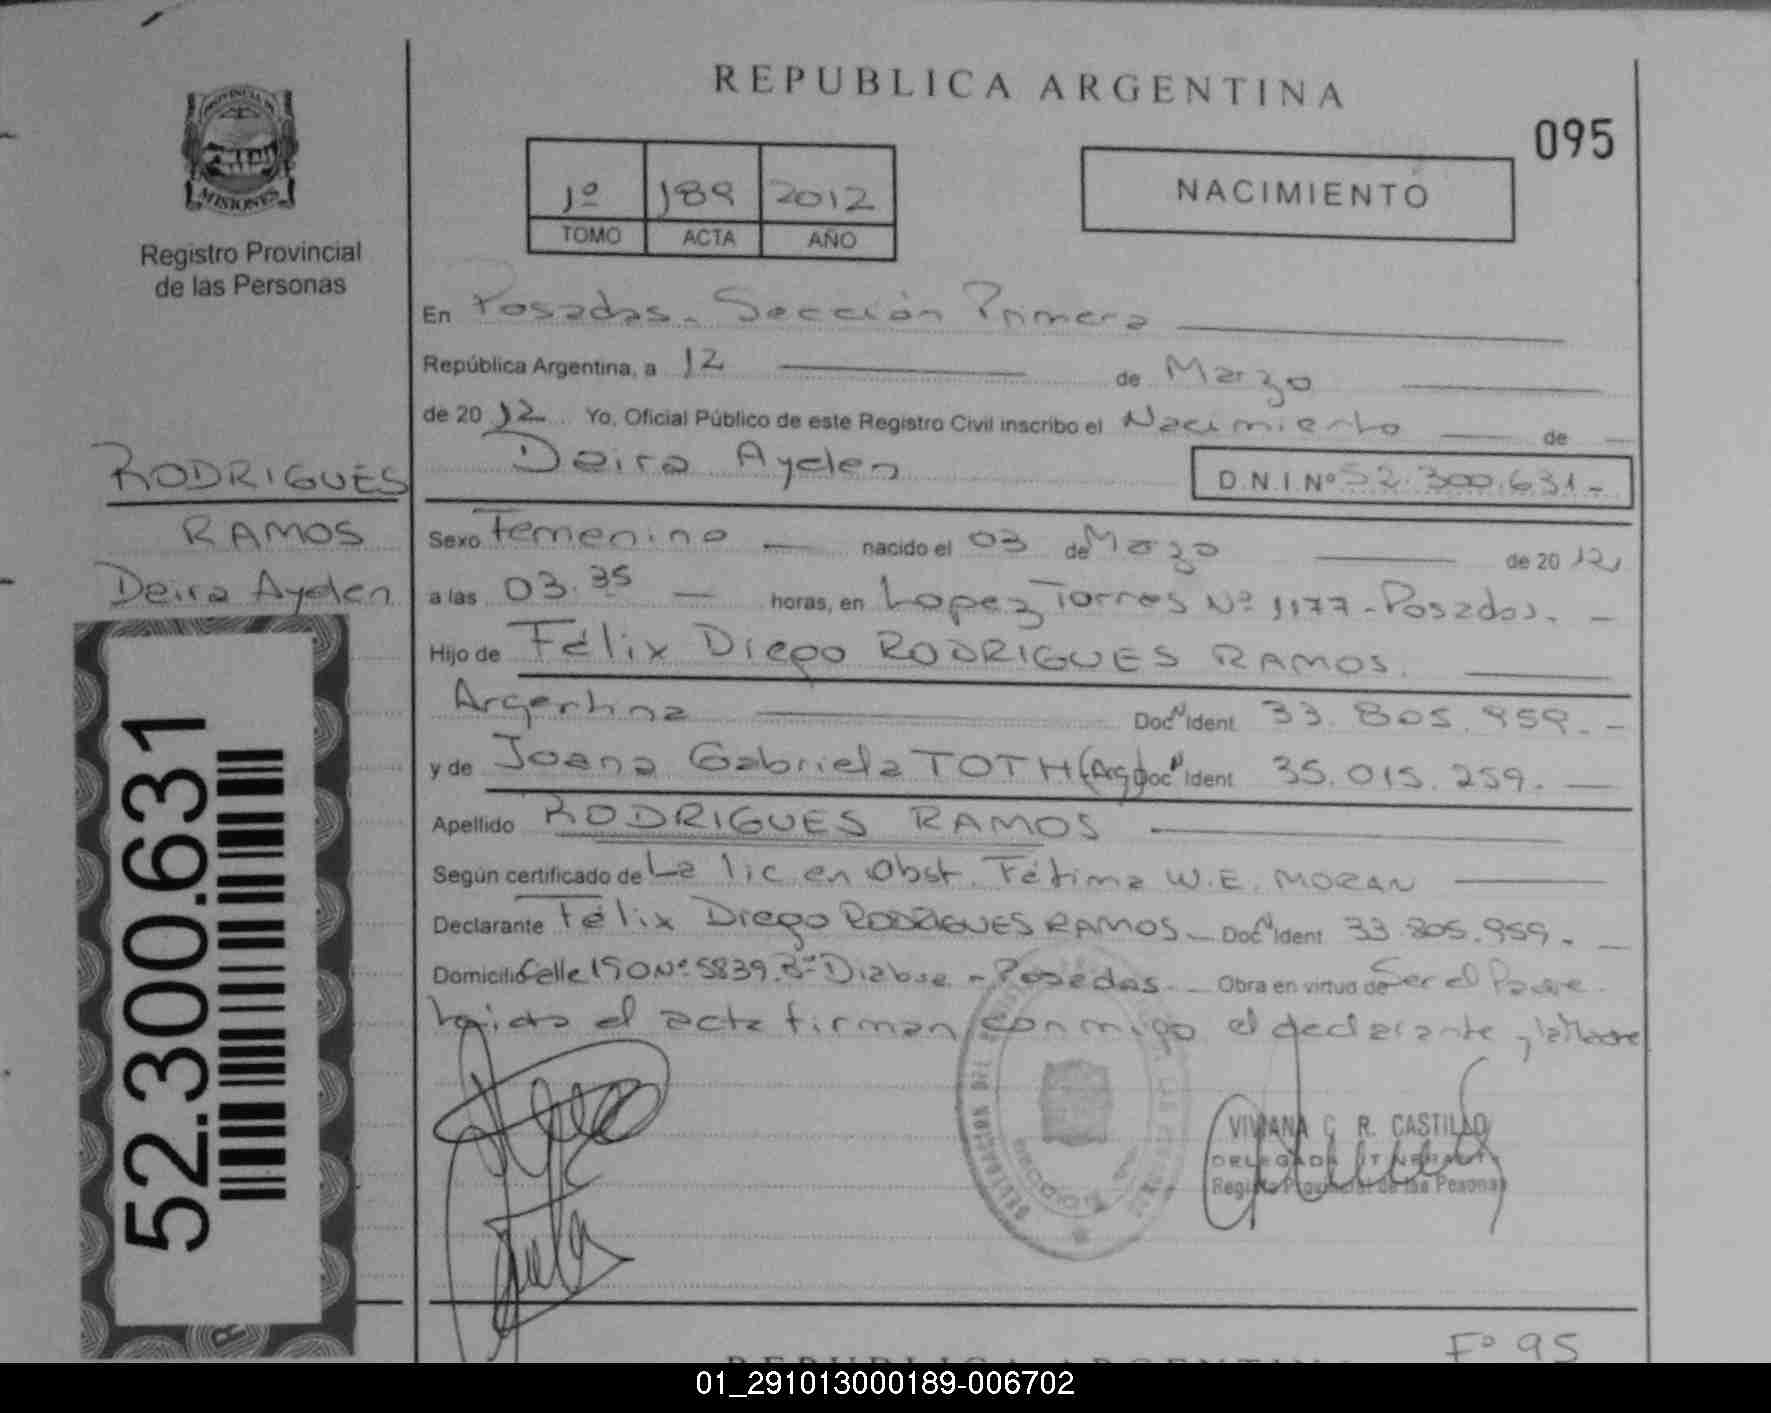 REPUBLICA ARGENTINA
095
PROVINCIA DE
MISIONES
Registro Provincial
de las Personas
1º 189 2012
TOMO ACTA AÑO
NACIMIENTO
En Posadas. Sección Primera
República Argentina, a 12 de Marzo
de 2012 Yo, Oficial Público de este Registro Civil inscribo el Nacimiento de
Deira Ayden D.N.I.Nº 52.300.631.-
RODRIGUES
RAMOS
Deira Ayden
52.300.631
Sexo Femenino nacido el 03 de Marzo de 2012
a las 03.35 horas, en Lopez Torres Nº 1177 - Posadas. -
Hijo de Félix Diego RODRIGUES RAMOS.
Argentina Doc Nº Ident 33.805.959.-
y de Joana Gabriela TOTH (Arg) Doc Nº Ident 35.015.259.
Apellido RODRIGUES RAMOS
Según certificado de La lic. en Obst. Fátima W.E. MORAN
Declarante Félix Diego RODRIGUES RAMOS.- Doc Nº Ident 33.805.959.-
Domicilio Calle 150 Nº 5839. Bº - Posadas. Obra en virtud de Ser el Padre.
leida el acta firman conmigo el declarante y la Madre
VIVIANA C. R. CASTILLO
DELEGADA ITINERANTE
Registro Provincial de las Personas
Fº 95
REPUBLICA ARGENTINA
01_291013000189-006702